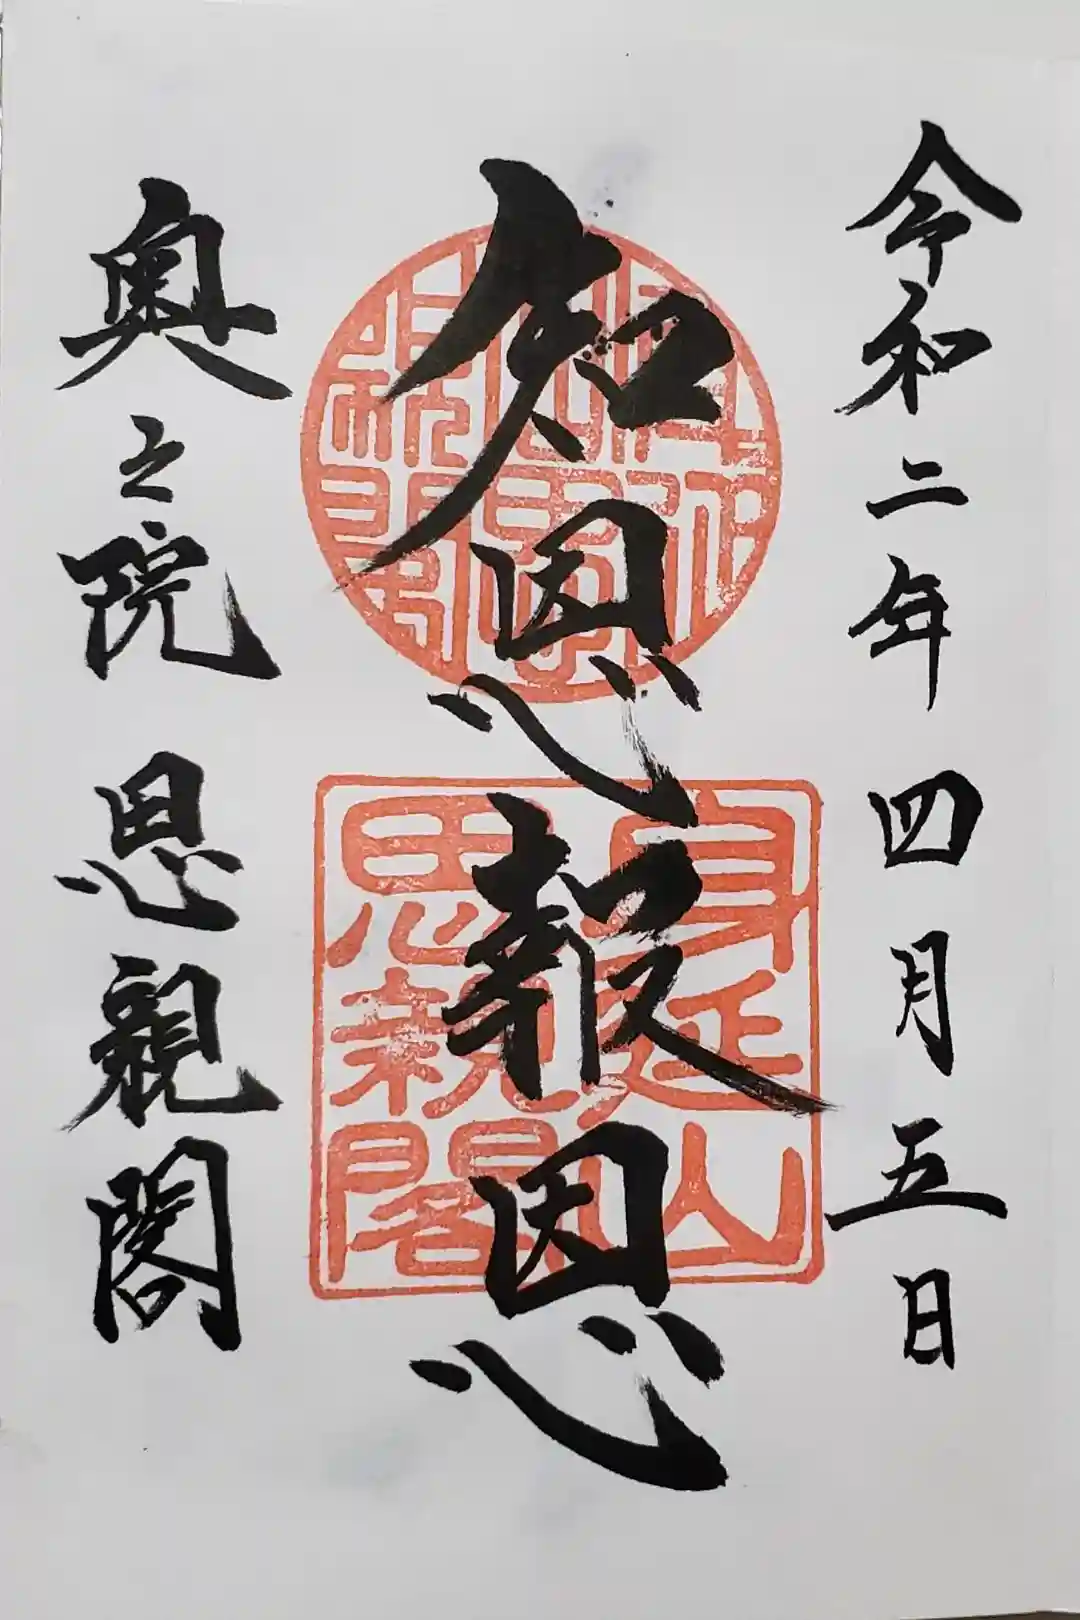 令和二年四月五日
知恩報恩
身延山
思親閣
奥之院 思親閣